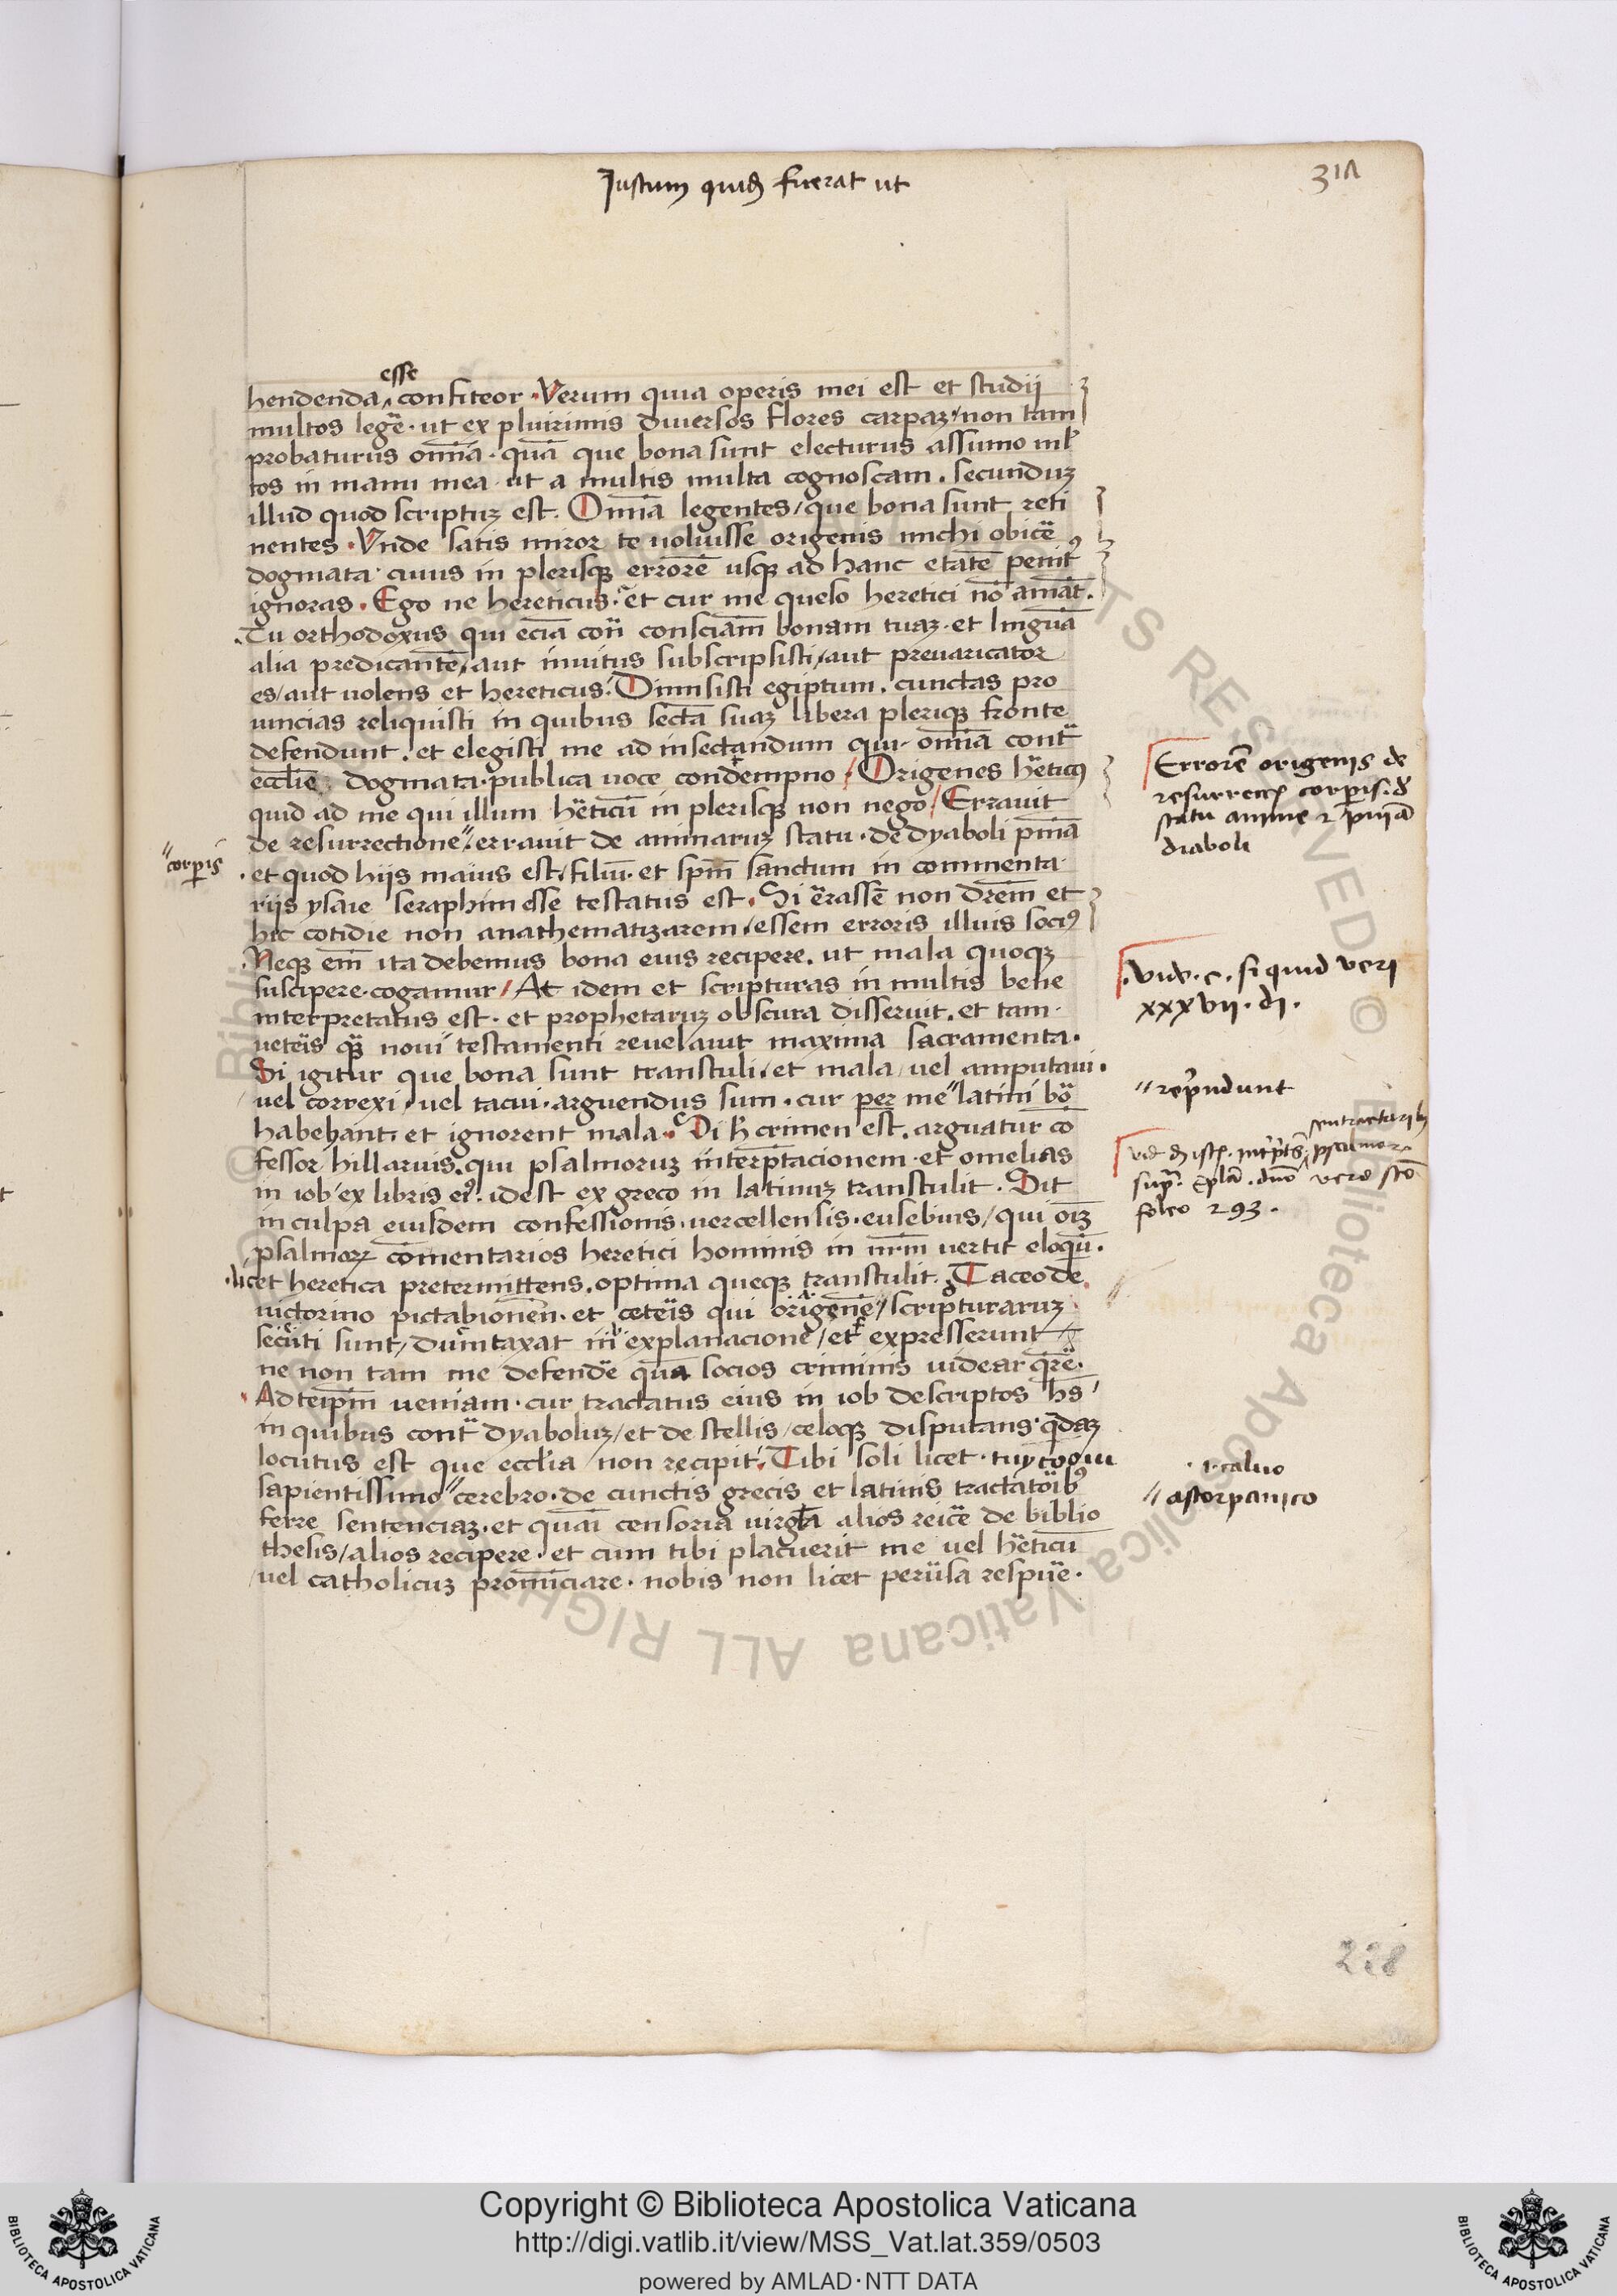 Justum quidē fuerat ut
311
esse
hendenda confiteor . Verum quia operis mei est et studij
multos legē̄ . ut ex plurimis diversos flores carpaʒ / non tam
probaturus om̄ia . quā que bona sunt electurus assumo ml̄
tos in manu mea ut a multis multa cognoscam . secunduʒ
illud quod scriptuʒ est . Om̄ia legentes / que bona sunt reti
nentes . Vnde satis miror te uoluisse origenis michi obicē
dogmata cuius in plerisqʒ errorē usqʒ ad hanc etatē penitꝰ
ignoras . Ego ne hereticus . et cur me queso heretici nō amāt .
Tu orthodoxus qui eciā con̄ consciām bonam tuaʒ . et linguā
alia predicantē / aut inuitus subscripsisti / aut preuaricator
es / aut uolens et hereticus . Dimisisti egiptum . cunctas pro
uincias reliquisti in quibus secta suaʒ libera pleriqʒ fronte
defendunt . et elegisti me ad insectandum qui . om̄ia cont̄
eccl̄ie dogmata . publica uoce condempno / Origenes h̄eticꝰ
quid ad me qui illum h̄eticū in plerisqʒ non nego / Erravit
de resurrectione // erravit de animaruʒ statu . de dyaboli pn̄ia
// corꝑis
. et quod hijs maius est / filiū . et spm̄ sanctum in commenta
rijs ysaie seraphim esse testatus est . Si ērassē non drēm et
hic cotidie non anathematizarem / essem erroris illius sociꝰ
Neqʒ em̄ ita debemus bona eius recipere . ut mala quoqʒ
suscipere . cogamur / At idem et scripturas in multis bene
interpretatus est . et prophetaruʒ obscura disseruit . et tam
uetēis qʒ̄ noui testamenti reuelauit maxima sacramenta .
Si igitur que bona sunt transtuli / et mala / uel amputaui .
uel correxi . uel tacui . arguendus sum . cur per me // latini bō
habeant . et ignorent mala . Si h̄ crimen est . arguatur cō
fessor / hillarius . qui psalmoruʒ interp̄tacionem . et omelias
in iob ex libris eiꝰ . id est ex greco in latinuʒ transtulit . Sit
in culpa eiusdem confessionis . uercellensis . eusebius / qui oīʒ
psalmoꝝ com̄entarios heretici hominis in nr̄m vertit eloquiū .
. licet heretica pretermittens . optima queqʒ transtulit . Taceo de
uictorino pictabionen̄ . et cetēis qui origenē / scripturaruʒ
secuti sunt / dumtaxat in explanacione / et expresserunt
ne non tam me defendē quā socios criminis uidear qr̄ē .
. Ad teip̄m ueniam . cur tractatus eius in iob descriptos h̄s
in quibus cont̄ dyaboluʒ / et de stellis / celoqʒ disputans qd̄aʒ
locutus est que eccl̄ia non recipit . Tibi soli licet . tuy
sapientissimo // cerebro . de cunctis grecis et latinis tractatōibꝰ
ferre sentenciaʒ . et quāi censoria virgla alios reicē de biblio
thesis / alios recipere . et cum tibi placuerit me uel h̄eticū
/ uel catholicuʒ pronunciare . nobis non licet peruisa respuē .
Errorē origenis de
resurrecc̄ corꝑis : d̄
statu anime ⁊ pn̄iā
diaboli
. vide . c . si quid veri
xxxvii . di .
// rep̄ndunt
psalmoꝝ
vere scō
folio 293 .
. calvo
//
228
© Biblioteca Apostolica Vaticana ALL RIGHTS RESERVED
Copyright © Biblioteca Apostolica Vaticana
http://digi.vatlib.it/view/MSS_Vat.lat.359/0503
powered by AMLAD·NTT DATA
BIBLIOTECA APOSTOLICA VATICANA
BIBLIOTECA APOSTOLICA VATICANA